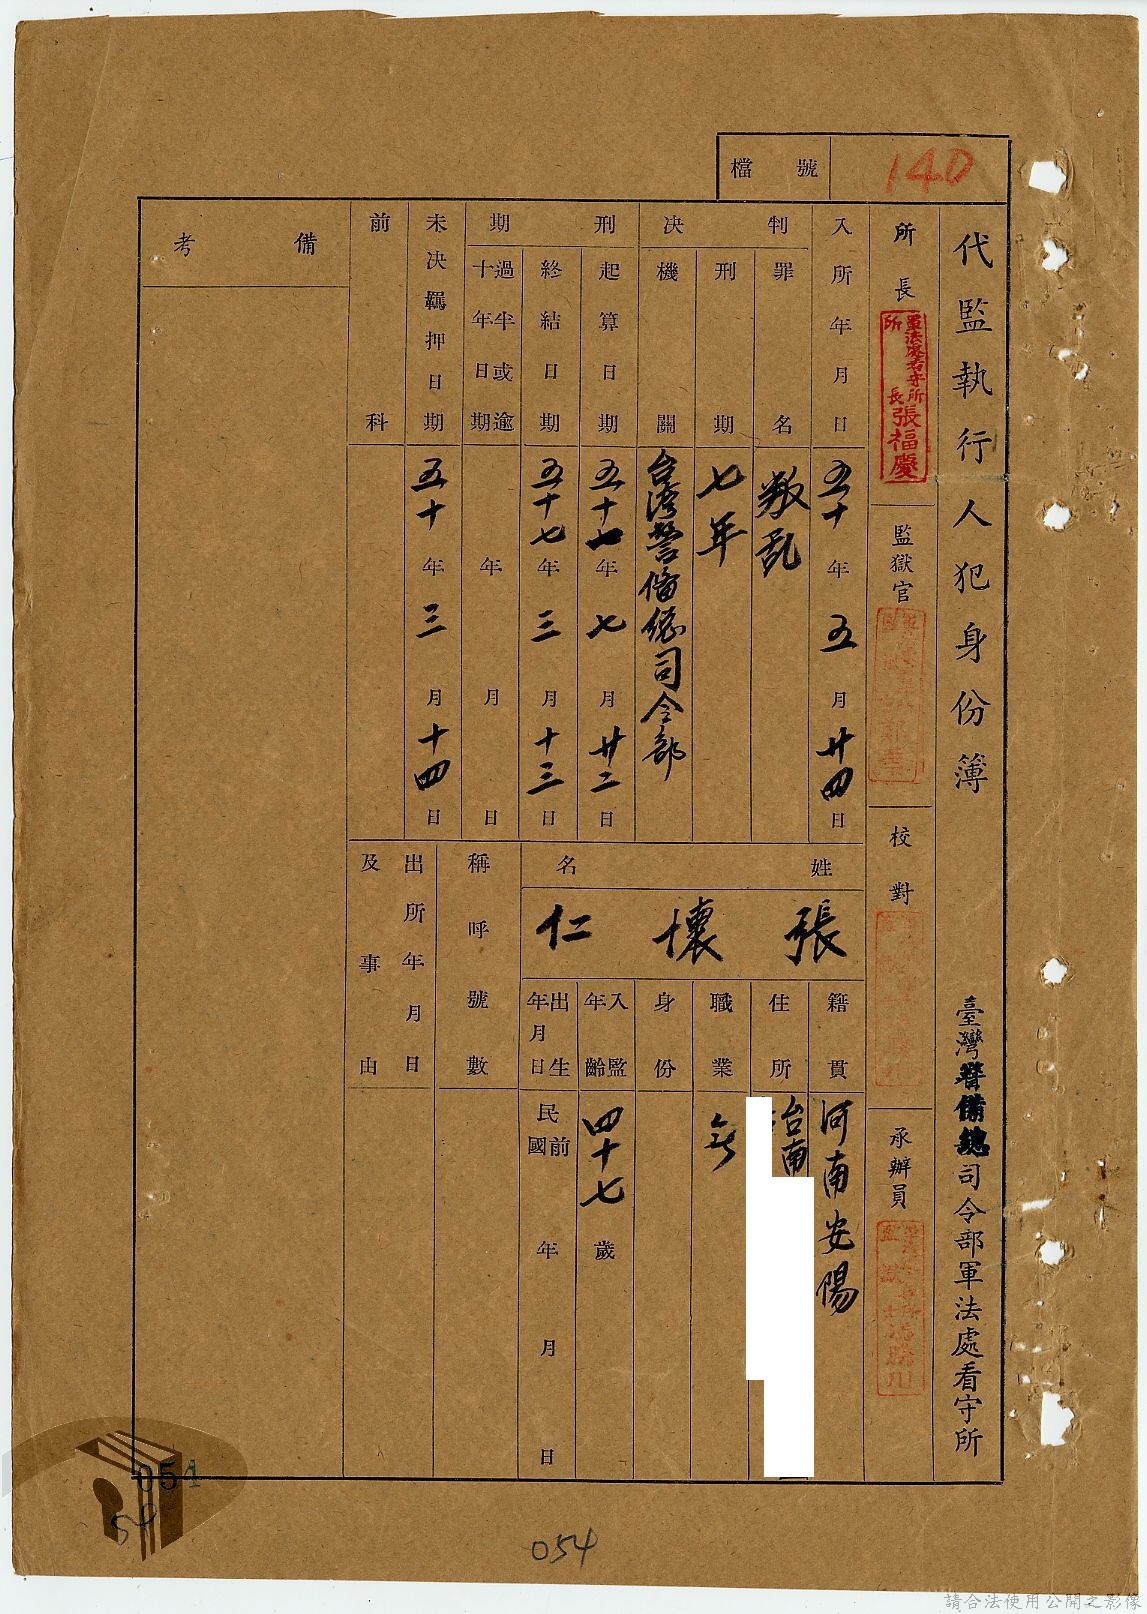 檔號
140
代監執行人犯身份簿
臺灣警備總司令部軍法處看守所
所長
軍法處看守所
所長張福慶
監獄官
校對
承辦員
入所年月日
五十年五月廿四日
判決
罪名
叛乱
刑期
七年
機關
台湾警備總司令部
刑期
起算日期
年七月廿二日
終結日期
五十七年三月十三日
過半或逾十年日期
年月日
未決羈押日期
五十年三月十四日
前科
備考
姓名
張懷仁
籍貫
河南安陽
住所
台南
職業
身份
入監年齡
四十七歲
出生年月日
民國前年月日
稱呼號數
出所年月日及事由
051
54
054
請合法使用公開之影像